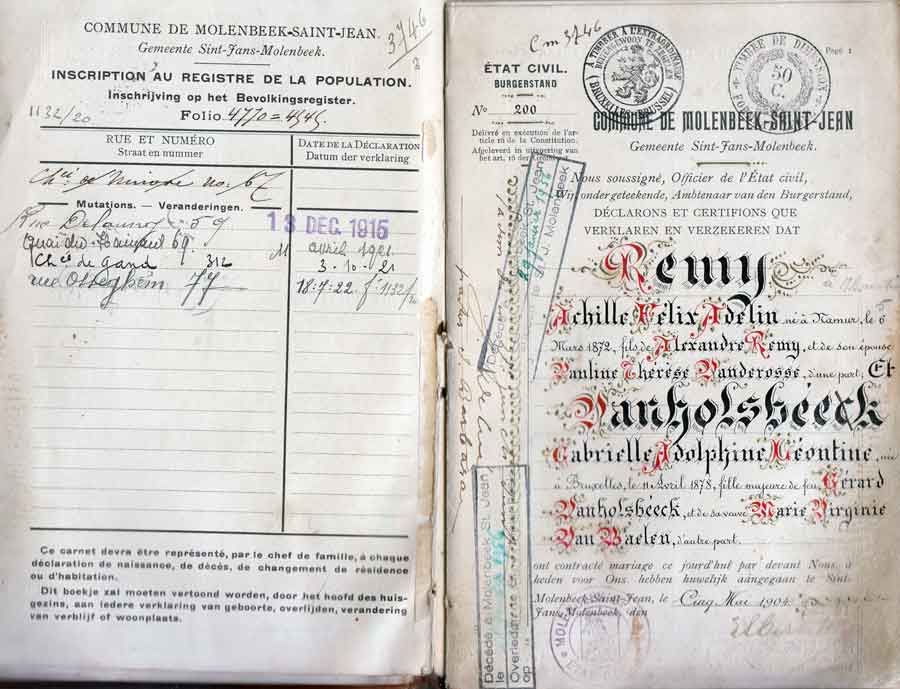 COMMUNE DE MOLENBEEK-SAINT-JEAN.
Gemeente Sint-Jans-Molenbeek.
3746
INSCRIPTION AU REGISTRE DE LA POPULATION.
Inschrijving op het Bevolkingsregister.
1132/20
Folio
RUE ET NUMÉRO
Straat en nummer
DATE DE LA DÉCLARATION
Datum der verklaring
no. 67
Mutations. — Veranderingen.
Rue Delaunoy 59
13 DEC. 1915
Quai du 69
11 avril 1921
Ch^ée de Gand 312
3-10-21
rue Osseghem 77
18-7-22 f° 1132/20
Ce carnet devra être représenté, par le chef de famille, à chaque
déclaration de naissance, de décès, de changement de résidence
ou d'habitation.
Dit boekje zal moeten vertoond worden, door het hoofd des huis-
gezins, aan iedere verklaring van geboorte, overlijden, verandering
van verblijf of woonplaats.
Cm 3746
Page 1
ÉTAT CIVIL.
BURGERSTAND
N° 200
À TIMBRER À L'EXTRAORDINAIRE
(BRUXELLES-BRUSSEL)
TIMBRE DE DIMENSION
50
C.
Délivré en exécution de l'ar-
ticle 16 de la Constitution.
Afgeleverd in uitvoering van
het art. 16 der Grondwet.
COMMUNE DE MOLENBEEK-SAINT-JEAN
Gemeente Sint-Jans-Molenbeek.
Nous soussigné, Officier de l'État civil,
Wij ondergeteekende, Ambtenaar van den Burgerstand,
DÉCLARONS ET CERTIFIONS QUE
VERKLAREN EN VERZEKEREN DAT
Remy
Achille Félix Adelin, né à Namur, le 6
Mars 1872, fils de Alexandre Remy, et de son épouse
Pauline Thérèse Vanderosse, d'une part; Et
Vanholsbéeck
Gabrielle Adolphine Léontine, née
à Bruxelles, le 11 Avril 1878, fille majeure de feu Gérard
Vanholsbéeck, et de sa veuve Marie Virginie
Van Baelen, d'autre part.
ont contracté mariage ce jourd'hui par devant Nous, à
heden voor Ons hebben huwelijk aangegaan te Sint-
Molenbeek-Saint-Jean, le Cinq Mai 1904
Jans-Molenbeek, den
Décédé à Molenbeek St. Jean
le
Overleden te St. J. Molenbeek
op